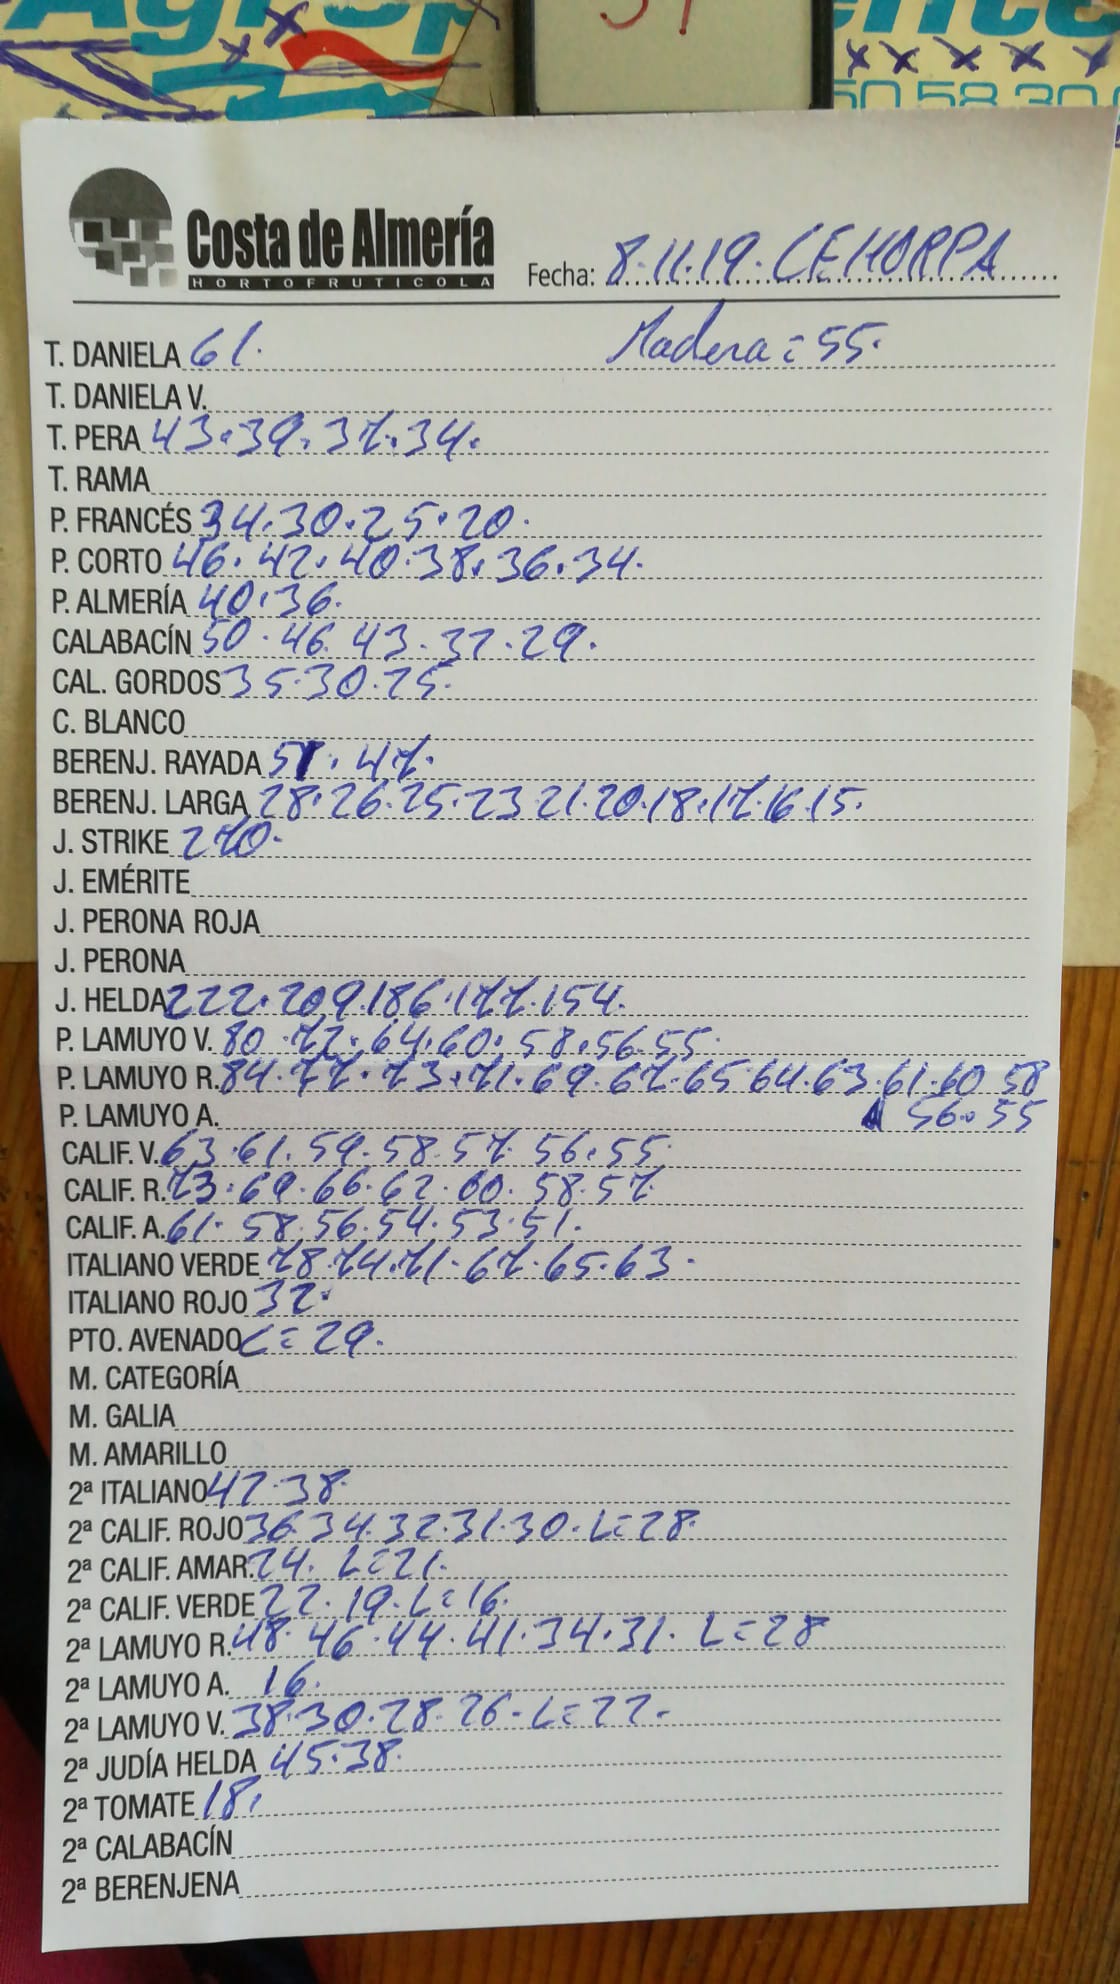 50 58 30
Costa de Almería
HORTOFRUTICOLA
Fecha: 8.11.19. CEHORPA
T. DANIELA 61. Madera = 55.
T. DANIELA V.
T. PERA 43.39.37.34.
T. RAMA
P. FRANCÉS 34.30.25.20.
P. CORTO 46.42.40.38.36.34.
P. ALMERÍA 40.36.
CALABACÍN 50.46.43.32.29.
CAL. GORDOS 35.30.25.
C. BLANCO
BERENJ. RAYADA 51.47.
BERENJ. LARGA 28.26.25.23 21.20.18.17.16.15.
J. STRIKE 270.
J. EMÉRITE
J. PERONA ROJA
J. PERONA
J. HELDA 222.209.186.177.154.
P. LAMUYO V. 80.72.64.60.58.56.55.
P. LAMUYO R. 84.77.73.71.69.67.65 64.63.61.60 58
P. LAMUYO A. 56.55
CALIF. V. 63.61.59.58.57.56.55.
CALIF. R. 73.69.66.62.60.58.57
CALIF. A. 61.58.56.54.53.51.
ITALIANO VERDE 78.74.71.67.65.63.
ITALIANO ROJO 32.
PTO. AVENADO L=29.
M. CATEGORÍA
M. GALIA
M. AMARILLO
2ª ITALIANO 42.38.
2ª CALIF. ROJO 36.34.32.31.30.L=28.
2ª CALIF. AMAR. 24. L=21.
2ª CALIF. VERDE 22.19.L=16.
2ª LAMUYO R. 48.46.44.41.34.31. L=28
2ª LAMUYO A. 16.
2ª LAMUYO V. 38.30.28.26.L=22.
2ª JUDÍA HELDA 45.38.
2ª TOMATE 18.
2ª CALABACÍN
2ª BERENJENA